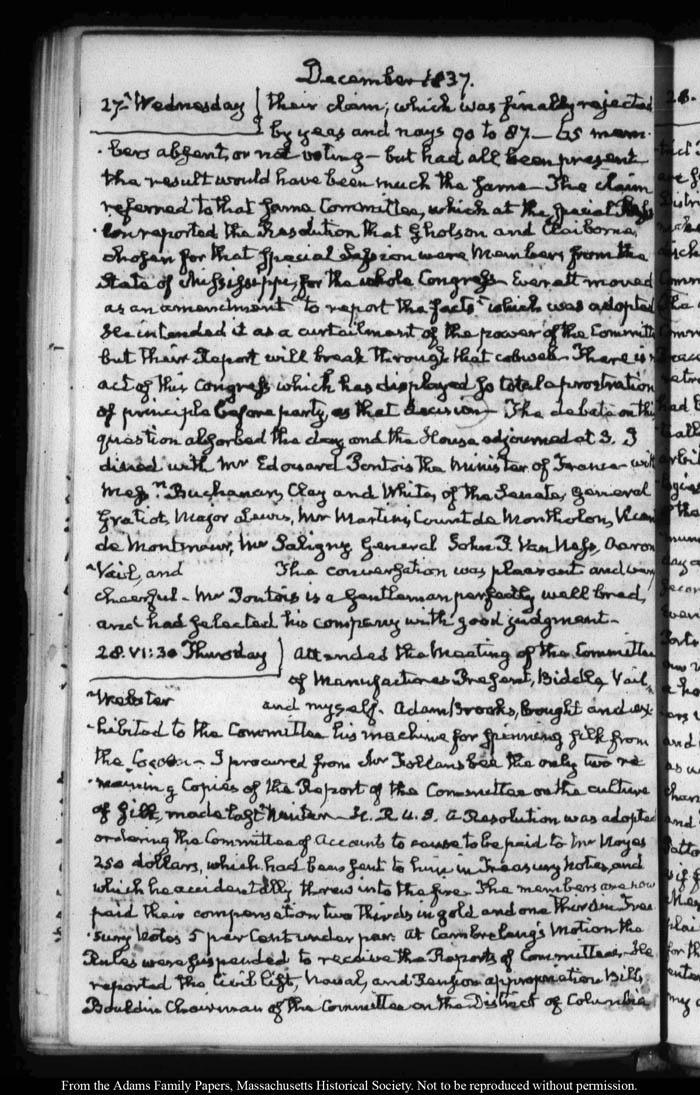 December 1837.
27. Wednesday } their claim; which was finally rejected
by yeas and nays 90 to 87 — 65 mem-
bers absent, or not voting — but had all been present
the result would have been much the same — The claim
referred to that same Committee, which at the special Sess-
ion reported the Resolution that Gholson and Claiborne,
chosen for that special Session were Members from the
State of Mississippi, for the whole Congress — Everett moved
as an amendment "to report the facts" which was adopted
He intended it as a curtailment of the power of the Committ
but their Report will break through that cobweb — There is
act of this Congress which has displayed so total a prostration
of principle before party, as that decision — The debate on this
question absorbed the day and the House adjourned at 3. I
dined with Mr Edouard Pontois the Minister of France — with
Mess.rs Buchanan, Clay and White, of the Senate, General
Gratiot, Major Lewis, Mr Martini, Count de Montholon, Vicom
de Montmaur, Mr Saligny General John P. Van Ness, Aaron
Vail, and The conversation was pleasant and very
cheerful — Mr Pontois is a Gentleman perfectly well bred,
and had selected his company with good judgment —
28. VI:30 Thursday } Attended the Meeting of the Committee
of Manufactures Present, Biddle, Vail,
Webster and myself. Adam Brooks, brought and ex-
hibited to the Committee his machine for spinning silk from
the Cocoon — I procured from Mr Follansbee the only two re-
maining Copies of the Report of the Committee on the culture
of silk, made last Winter — H. R. U. S. A Resolution was adopted
ordering the Committee of Accounts to cause to be paid to Mr Noyes
250 dollars, which had been sent to him in Treasury Notes, and
which he accidentally threw into the fire. The members are now
paid their compensation two thirds in gold and one third in Trea-
sury Notes 5 per Cent under par. At Cambreleng's Motion the
Rules were suspended to receive the Reports of Committees. He
reported the Civil list, Naval, and Pension appropriation Bills,
Bouldin Chairman of the Committee on the District of Columbia
From the Adams Family Papers, Massachusetts Historical Society. Not to be reproduced without permission.